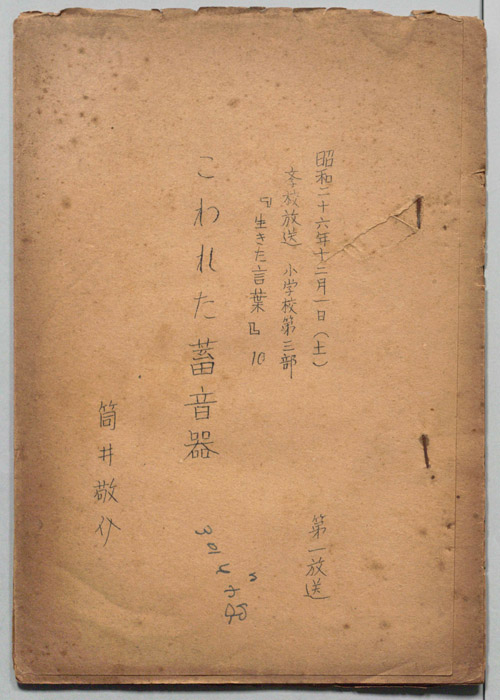 昭和二十六年十二月一日(土)
放送 小学校第三部
『生きた言葉』10
こわれた蓄音器
筒井敬介
第一放送